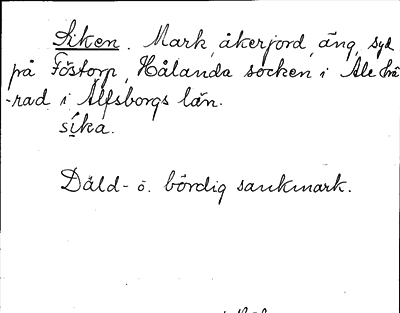 Siken. Mark, åkerjord, äng, syd
på Föstorp, Hålanda socken i Ale hä
-rad i Älfsborgs län.
síka.
Dåld- o. bördig sankmark.